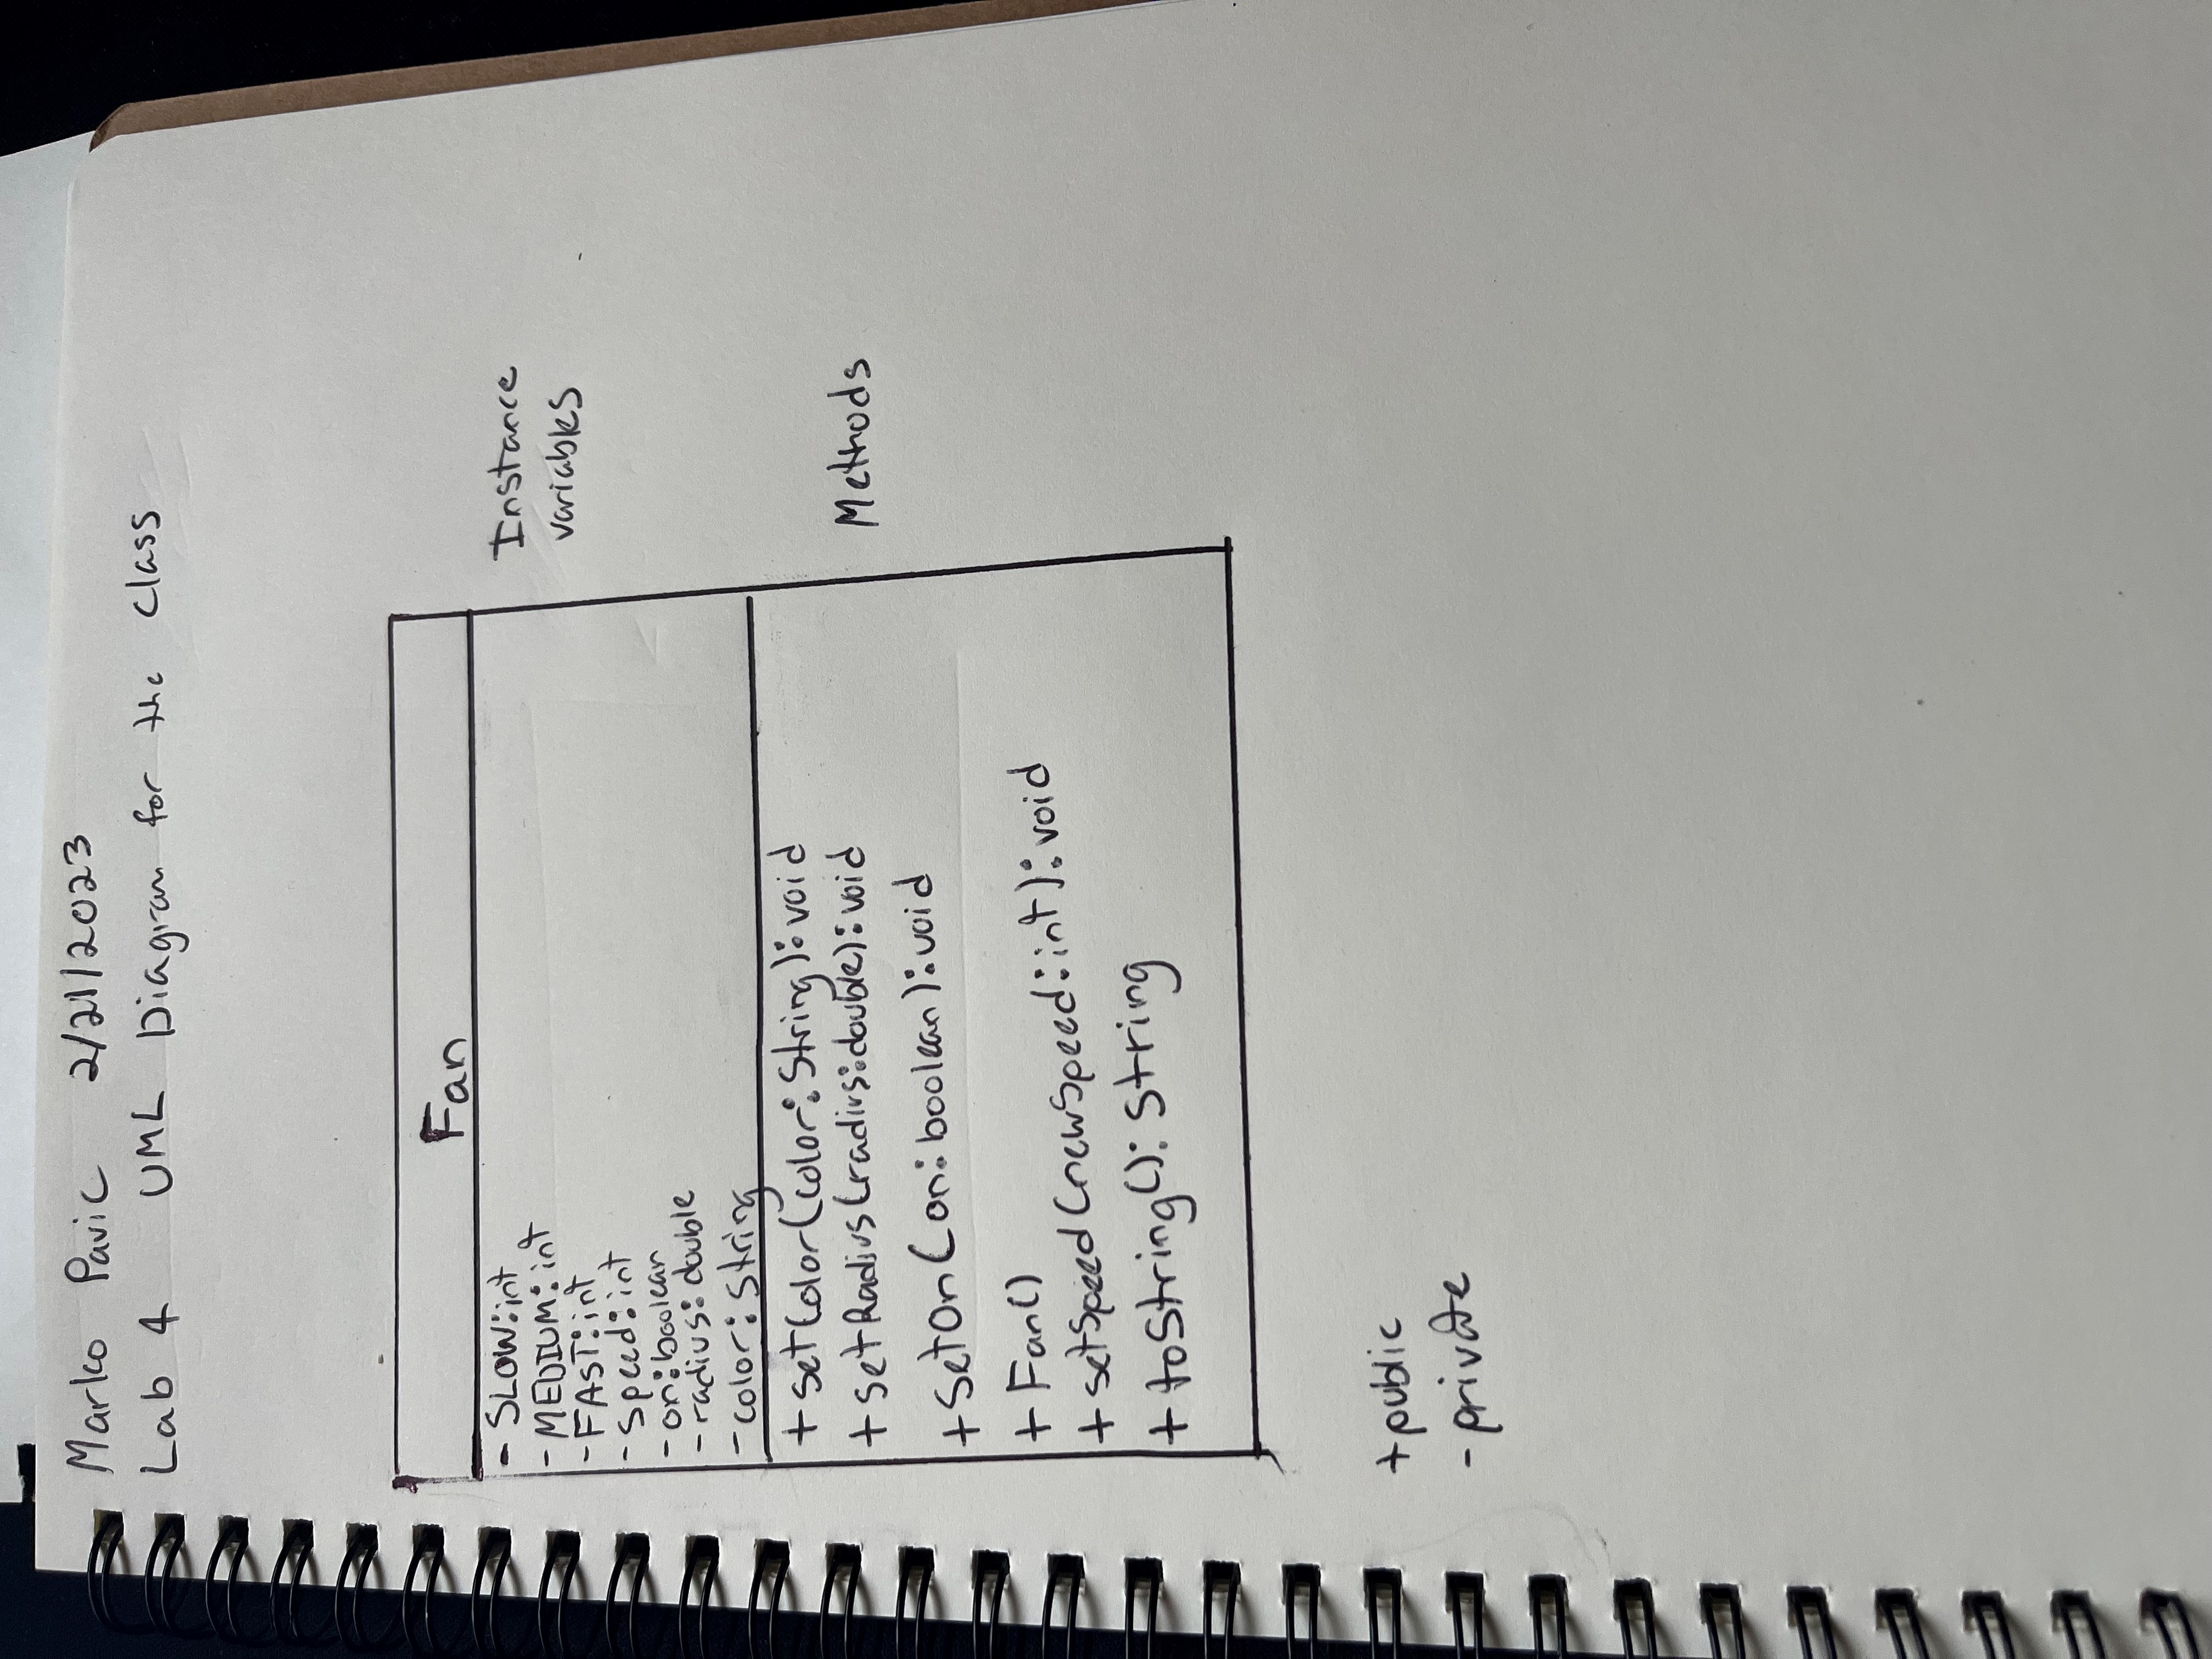 Marko Pavic 2/21/2023
Lab 4 UML Diagram for the class
Fan
- SLOW:int
- MEDIUM:int
- FAST:int
- speed:int
- on:boolean
- radius:double
- color:String
Instance
variables
+ setColor(color:String):void
+ setRadius(radius:double):void
+ setOn(on:boolean):void
+ Fan()
+ setSpeed(newSpeed:int):void
+ toString():String
Methods
+ public
- private